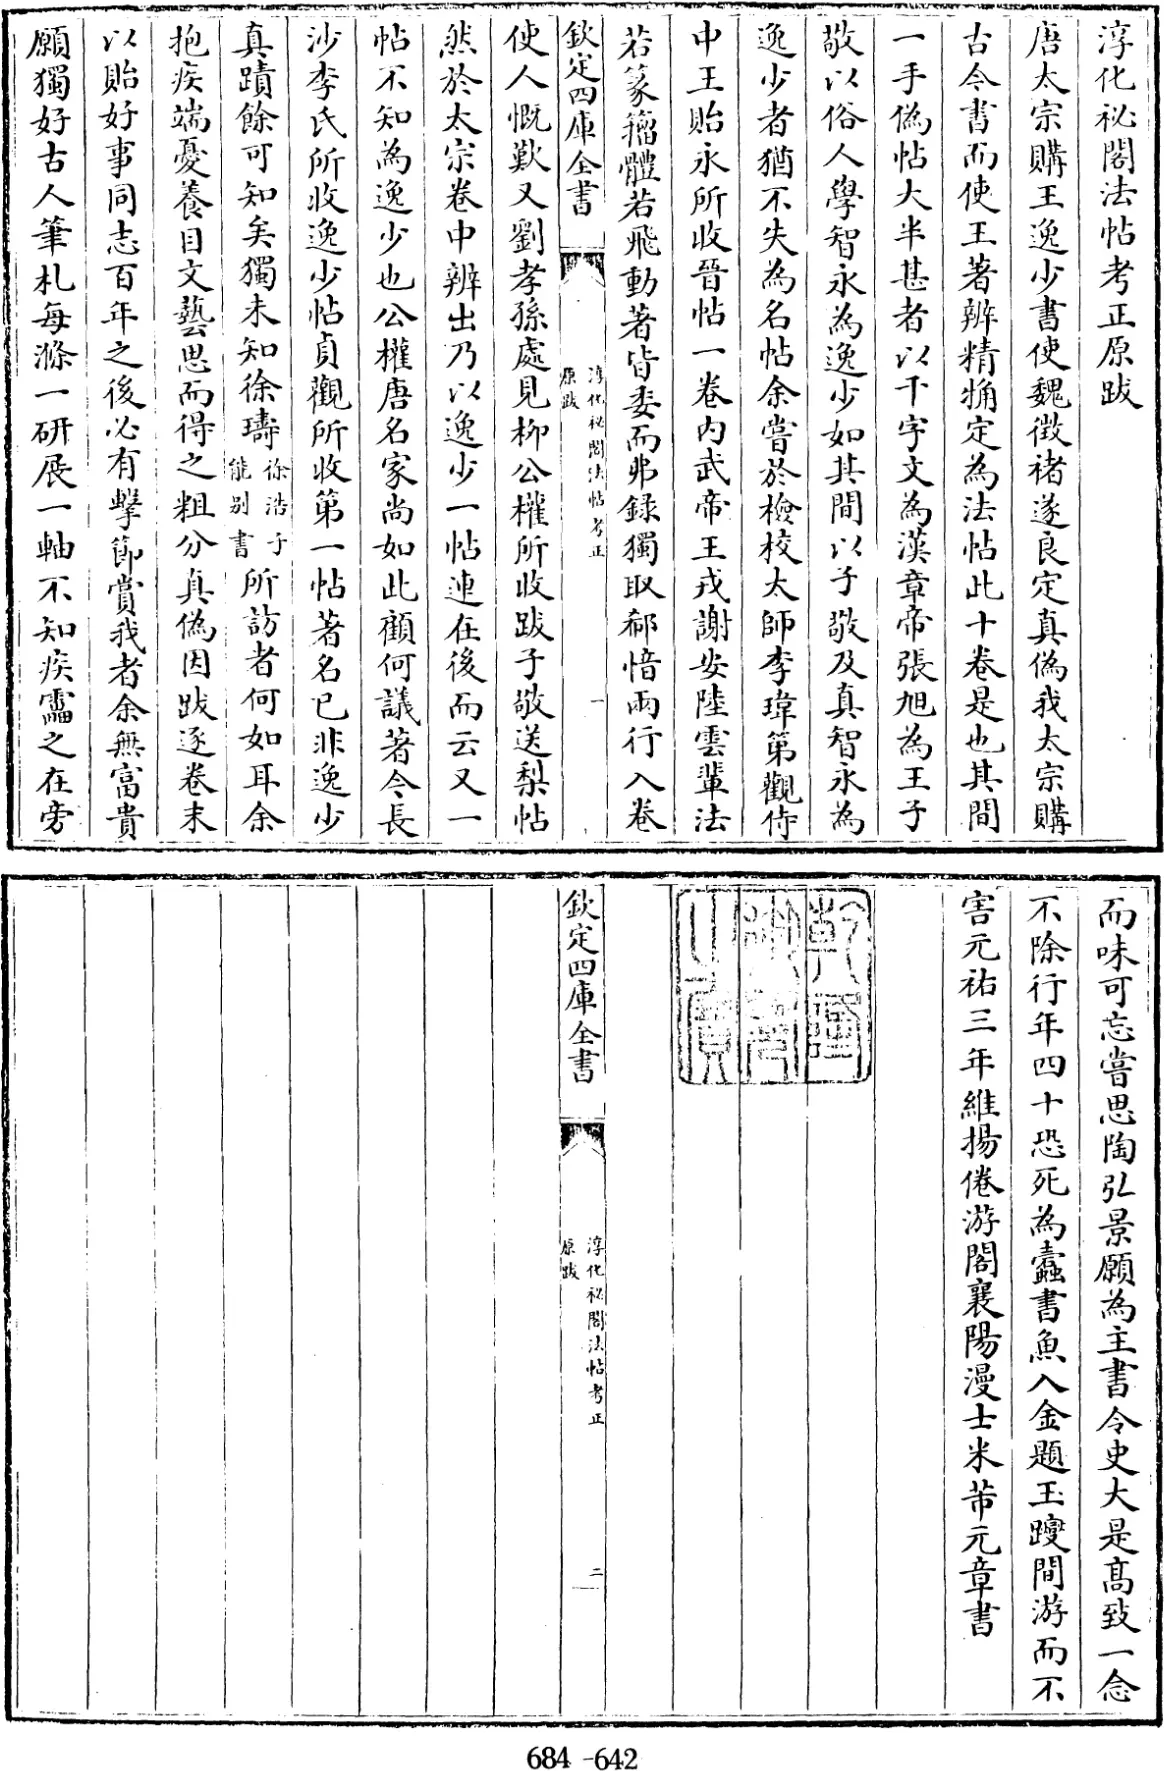 淳化祕閣法帖考正原跋
唐太宗購王逸少書使魏徴褚遂良定真偽我太宗購
古今書而使王著辨精觕定為法帖此十卷是也其間
一手偽帖大半甚者以千字文為漢章帝張旭為王子
敬以俗人學智永為逸少如其間以子敬及真智永為
逸少者猶不失為名帖余嘗於檢校太師李瑋第觀侍
中王貽永所收晉帖一卷内武帝王戎謝安陸雲輩法
若篆籀體若飛動著皆委而弗録獨取郗愔兩行入卷
欽定四庫全書
淳化祕閣法帖考正
原跋
一
使人慨歎又劉孝孫處見柳公權所收跋子敬送梨帖
然於太宗卷中辨出乃以逸少一帖連在後而云又一
帖不知為逸少也公權唐名家尚如此顧何議著今長
沙李氏所收逸少帖貞觀所收第一帖著名已非逸少
真蹟餘可知矣獨未知徐璹徐浩子能别書所訪者何如耳余
抱疾端憂養目文藝思而得之粗分真偽因跋逐卷末
以貽好事同志百年之後必有擊節賞我者余無富貴
願獨好古人筆札每滌一研展一軸不知疾靁之在旁
而味可忘嘗思陶弘景願為主書令史大是髙致一念
不除行年四十恐死為蠧書魚入金題玉躞間游而不
害元祐三年維揚倦游閣襄陽漫士米芾元章書
欽定四庫全書
淳化祕閣法帖考正
原跋
二
684-642